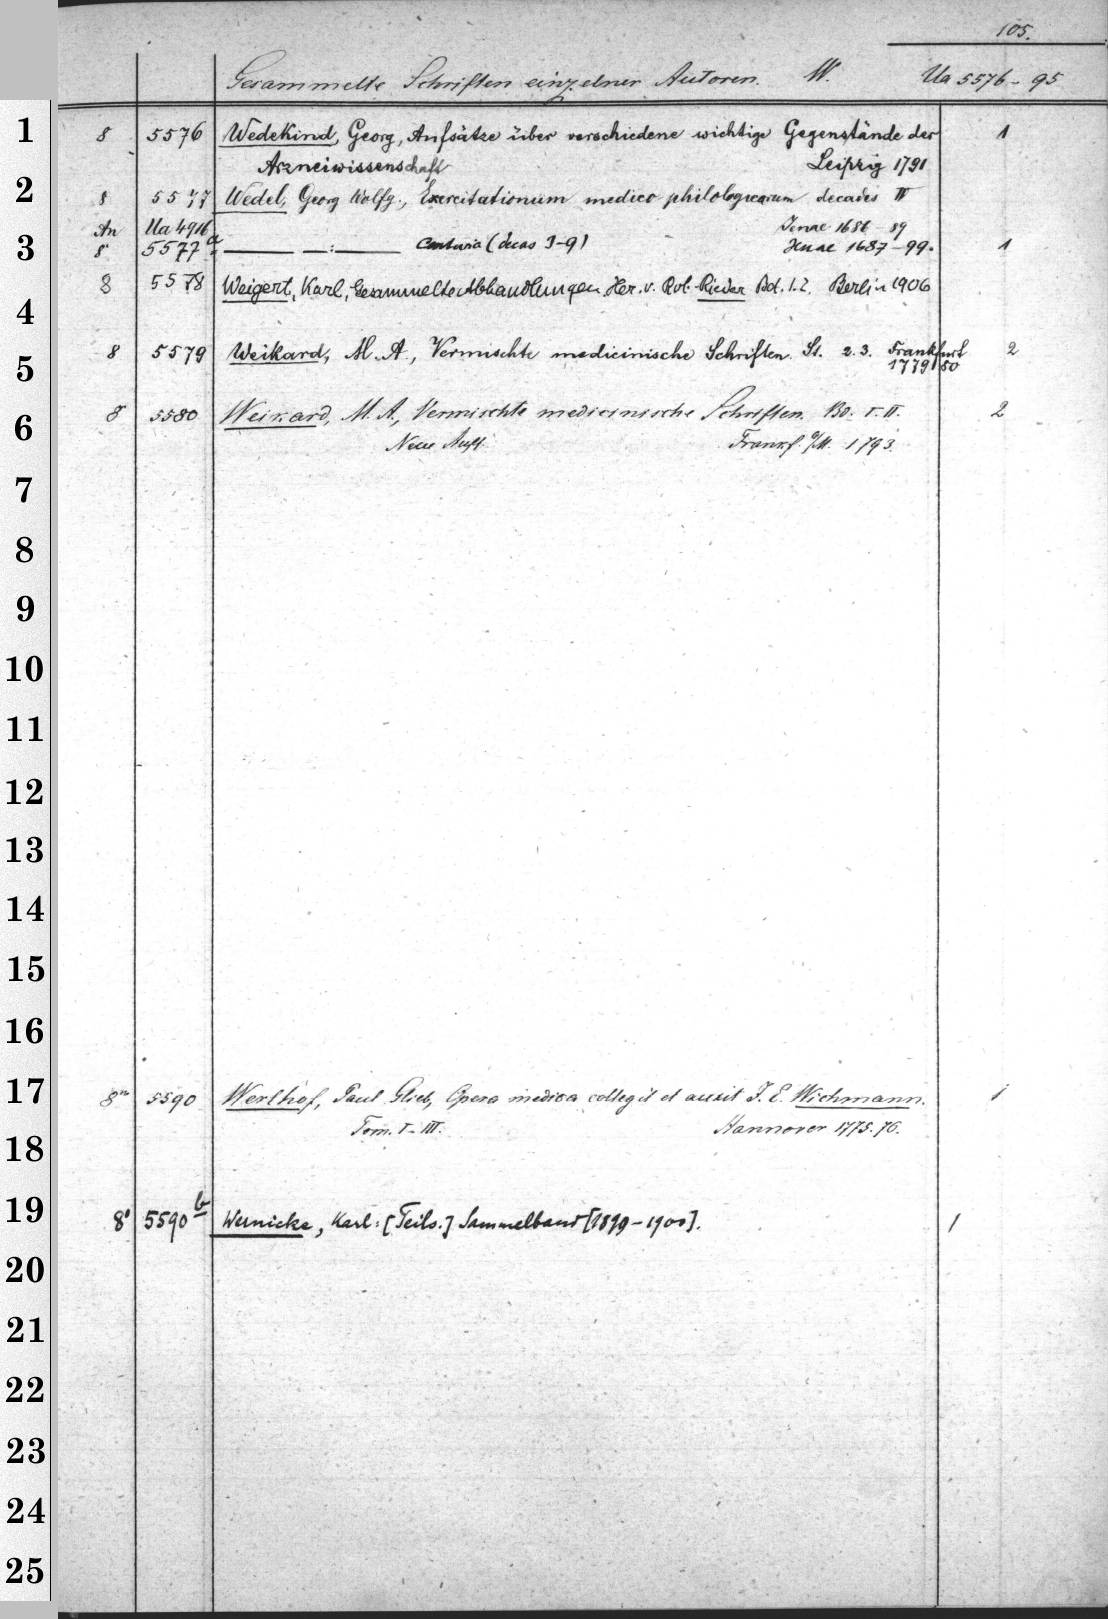 105.
Gesammelte Schriften einzelner Autoren. W. Ua 5576-95
1 8 5576 Wedekind, Georg, Aufsätze über verschiedene wichtige Gegenstände der 1
Arzneiwissenschaft Leipzig 1791
2 8 5577 Wedel, Georg Wolfg., Exercitationum medico philologicarum decades
An Ua 4916 Jenae 1686 89
3 8 5577a — — : — Centuria (decas 1-9) Jenae 1687-99. 1
8 5578 Weigert, Karl, Gesammelte Abhandlungen Her. v. Rob. Rieder Bd. 1.2. Berlin 1906
4
5 8 5579 Weikard, M. A., Vermischte medicinische Schriften. St. 2.3. Frankfurt 2
1779 80
6 8 5580 Weikard, M. A., Vermischte medicinische Schriften. Bd. I. II. 2
Neue Aufl. Frankf. a/M. 1793.
7
8
9
10
11
12
13
14
15
16
17 8° 5590 Werlhof, Paul Glieb, Opera medica collegit et auxit J. E. Wichmann. 1
18 Tom. I-III. Hannover 1775.76.
19 8° 5590b Wernicke, Karl: [Teils.] Sammelband [1899-1900]. 1
20
21
22
23
24
25